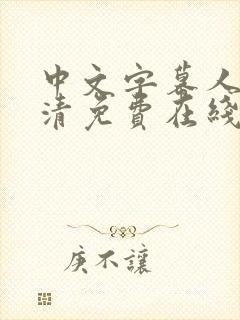 中文字幕人
清免費在綫
庚不讓